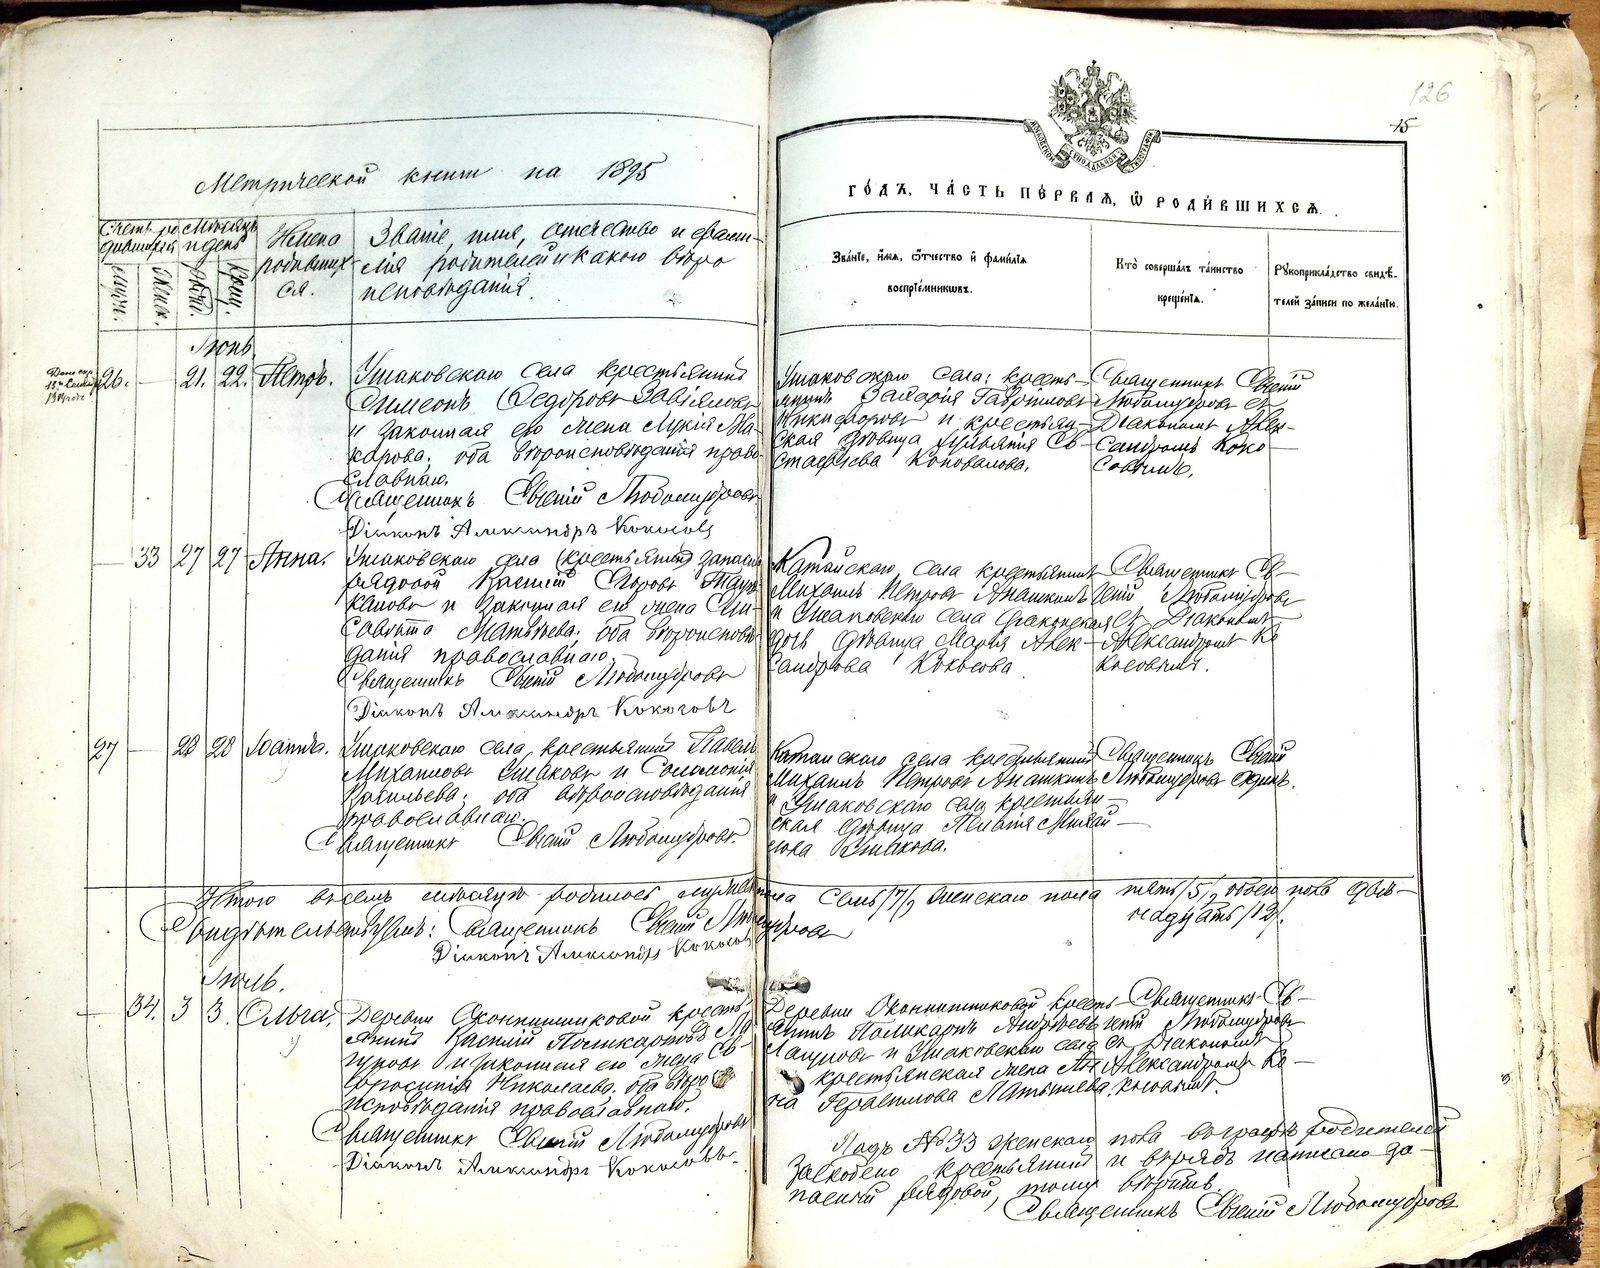 126
15
Метрической книги на 1895
Счетъ ро-
дившихся
Мѣсяцъ
и день
Имена
родивших-
ся.
Званіе, имя, отчество и фами-
лія родителей и какого вѣро
исповѣданія.
Муж.
Женск.
Рожд.
Крещ.
годъ, часть первая, ѡ родившихся.
Званіе, имя, ѿчество и фамилія
воспріемниковъ.
Кто совершалъ таинство
крещенія.
Рукоприкладство свидѣ-
телей записи по желанію.
Іюнь.
26. — 21. 22. Петръ.
Ушаковскаго села крестьянинъ
Симеонъ Ѳедоровъ Завьяловъ
и законная его жена Лукія Ма-
карова; оба вѣроисповѣданія право-
славнаго.
Священникъ Евгеній Любомудровъ
Діаконъ Александръ Кокосовъ
Ушаковскаго села: кресть-
янинъ Гавріиловъ
Никифоровъ и крестьян-
ская дѣвица Ев-
стафіева Коновалова.
Священникъ Евгеній
Любомудровъ съ
Діакономъ Алек-
сандромъ Коко-
совымъ.
— 33 27 27 Анна.
Ушаковскаго села (крестьянинъ) запасный
рядовой Василій Егоровъ
и законная его жена Ели-
савета Матвѣева; оба вѣроисповѣ-
данія православнаго.
Священникъ Евгеній Любомудровъ
Діаконъ Александръ Кокосовъ
Катайскаго села крестьянинъ
Михаилъ Петровъ Анашкинъ
и Ушаковскаго села діаконская
дочь дѣвица Марія Алек-
сандрова Кокосова
Священникъ Ев-
геній Любомудровъ
съ Діакономъ
Александромъ Ко-
косовымъ.
27 — 28 28 Іоаннъ.
Ушаковскаго села, крестьянинъ Павелъ
Михаиловъ Ушаковъ и Соломонія
Васильева; оба вѣроисповѣданія
православнаго.
Священникъ Евгеній Любомудровъ.
Катайскаго села крестьянинъ
Михаилъ Петровъ Анашкинъ
и Ушаковскаго села крестьян-
ская дѣвица Михай-
лова Ушакова.
Священникъ Евгеній
Любомудровъ одинъ.
Итого въ семъ мѣсяцѣ родилось мужескаго пола семь /7/, женскаго пола пять /5/, обоего пола двѣ-
надцать /12/.
Свидѣтельствуемъ: Священникъ Евгеній Любомудровъ
Діаконъ Александръ Кокосовъ
Іюль.
— 34. 3 3. Ольга.
Деревни Оконишниковой кресть-
янинъ Василій Поликарповъ Ла-
гуновъ и законная его жена Ев-
фросинія Николаева; оба вѣро-
исповѣданія православнаго.
Священникъ Евгеній Любомудровъ
Діаконъ Александръ Кокосовъ.
Деревни Оконишниковой кресть-
янинъ Поликарпъ Андреевъ
Лагуновъ и Ушаковскаго села
крестьянская жена Ан-
на Герасимова Латышева.
Священникъ Ев-
геній Любомудровъ
съ Діакономъ
Александромъ Ко-
косовымъ.
Подъ № 33 женскаго пола въ графѣ родителей
заскоблено крестьянинъ и вѣрядъ написано за-
пасный рядовой, тому вѣрить.
Священникъ Евгеній Любомудровъ